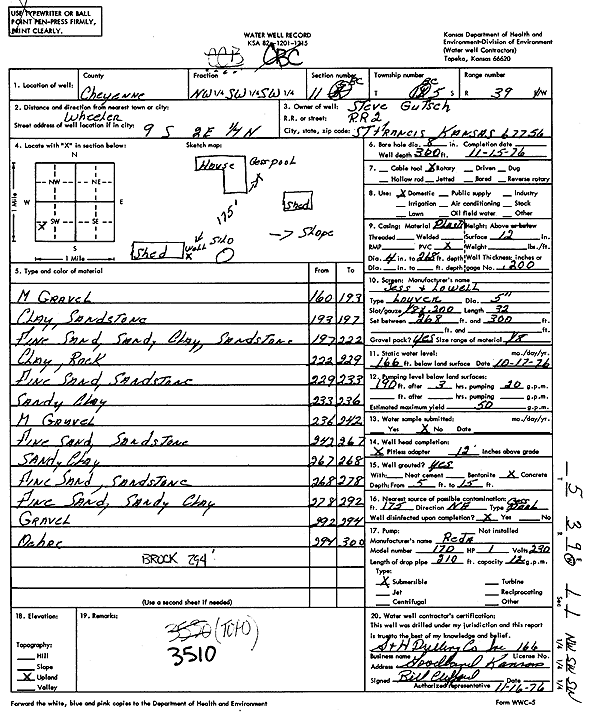 USE TYPEWRITER OR BALL
POINT PEN-PRESS FIRMLY,
PRINT CLEARLY.
WATER WELL RECORD
KSA 82a-1201-1215
Kansas Department of Health and
Environment-Division of Environment
(Water well Contractors)
Topeka, Kansas 66620
CCB CBC
1. Location of well: County Cheyenne Fraction NW 1/4 SW 1/4 SW 1/4 Section number 11 Township number T 5 S Range number R 39 W
2. Distance and direction from nearest town or city: Wheeler
Street address of well location if in city: 9 S 2E 1/4 N
3. Owner of well: Steve Gutsch
R.R. or street: R.R.2
City, state, zip code: St Francis Kansas 67756
4. Locate with "X" in section below:
Sketch map:
N
NW NE
W E
SW SE
X
S
1 Mile
1 Mile
House
Cesspool
175'
Shed
Shed
Well
Silo
Slope
6. Bore hole dia. 8 in. Completion date
Well depth 300 ft. 11-15-76
7. Cable tool X Rotary Driven Dug
Hollow rod Jetted Bored Reverse rotary
8. Use: X Domestic Public supply Industry
Irrigation Air conditioning Stock
Lawn Oil field water Other
9. Casing: Material Plastic Height: Above or below
Threaded Welded Surface 12 in.
RMP PVC X Weight lbs./ft.
Dia. 4 in. to 268 ft. depth Wall Thickness: inches or
Dia. in. to ft. depth gage No. .200
10. Screen: Manufacturer's name
Jess & Lowell
Type Louver Dia. 5"
Slot/gauze Length 32
Set between 268 ft. and 300 ft.
ft. and ft.
Gravel pack? yes Size range of material 1/8
11. Static water level: mo./day/yr.
166 ft. below land surface Date 10-17-76
12. Pumping level below land surfaces:
190 ft. after 3 hrs. pumping 20 g.p.m.
ft. after hrs. pumping g.p.m.
Estimated maximum yield 50 g.p.m.
13. Water sample submitted: mo./day/yr.
Yes X No Date
14. Well head completion:
X Pitless adapter 12" Inches above grade
15. Well grouted? yes
With: Neat cement Bentonite X Concrete
Depth: From 5 ft. to 15 ft.
16. Nearest source of possible contamination:
ft. 175 Direction Type Cess Pool
Well disinfected upon completion? X Yes No
17. Pump: Not installed
Manufacturer's name Reda
Model number 17D HP 1 Volts 230
Length of drop pipe 210 ft. capacity 12 g.p.m.
Type:
X Submersible Turbine
Jet Reciprocating
Centrifugal Other
5. Type and color of material From To
M Gravel 160 193
Clay, Sandstone 193 197
Fine Sand, Sandy Clay, Sandstone 197 222
Clay, Rock 222 229
Fine Sand, Sandstone 229 233
Sandy Clay 233 236
M Gravel 236 242
Fine Sand, Sandstone 242 267
Sandy Clay 267 268
Fine Sand, Sandstone 268 278
Fine Sand, Sandy Clay 278 292
Gravel 292 294
Ocher 294 300
BROCK 294'
(Use a second sheet if needed)
18. Elevation:
Topography:
Hill
Slope
X Upland
Valley
19. Remarks:
3550 (TOPO)
3510
20. Water well contractor's certification:
This well was drilled under my jurisdiction and this report
is true to the best of my knowledge and belief.
S & H Drilling Co Inc 166
Business name License No.
Address Goodland Kansas
Signed Bill Clifford Date 11-16-76
Authorized representative
T 5 R 39 W Sec 11 NW SW SW
1/4 1/4 1/4
Forward the white, blue and pink copies to the Department of Health and Environment
Form WWC-5